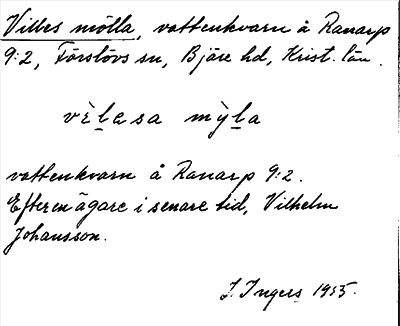 Villes mölla, vattenkvarn å Ranarp
9:2, Förslövs sn, Bjäre hd, Krist. län.
vèlesa mỳla
vattenkvarn å Ranarp 9:2.
Efter en ägare i senare tid, Vilhelm
Johansson.
I. Ingers 1955.